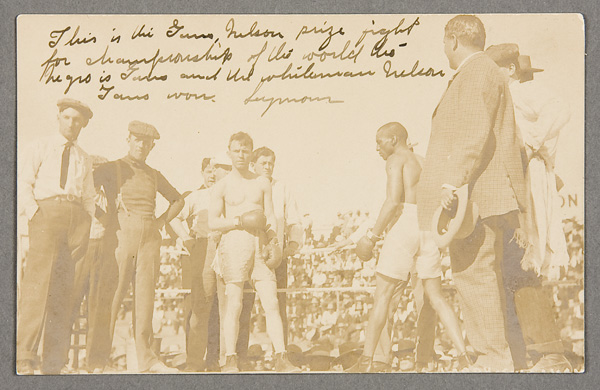 This is the Gans, Nelson prize fight
for championship of the world the
negro is Gans and the whiteman Nelson
Gans won. Seymour
ON